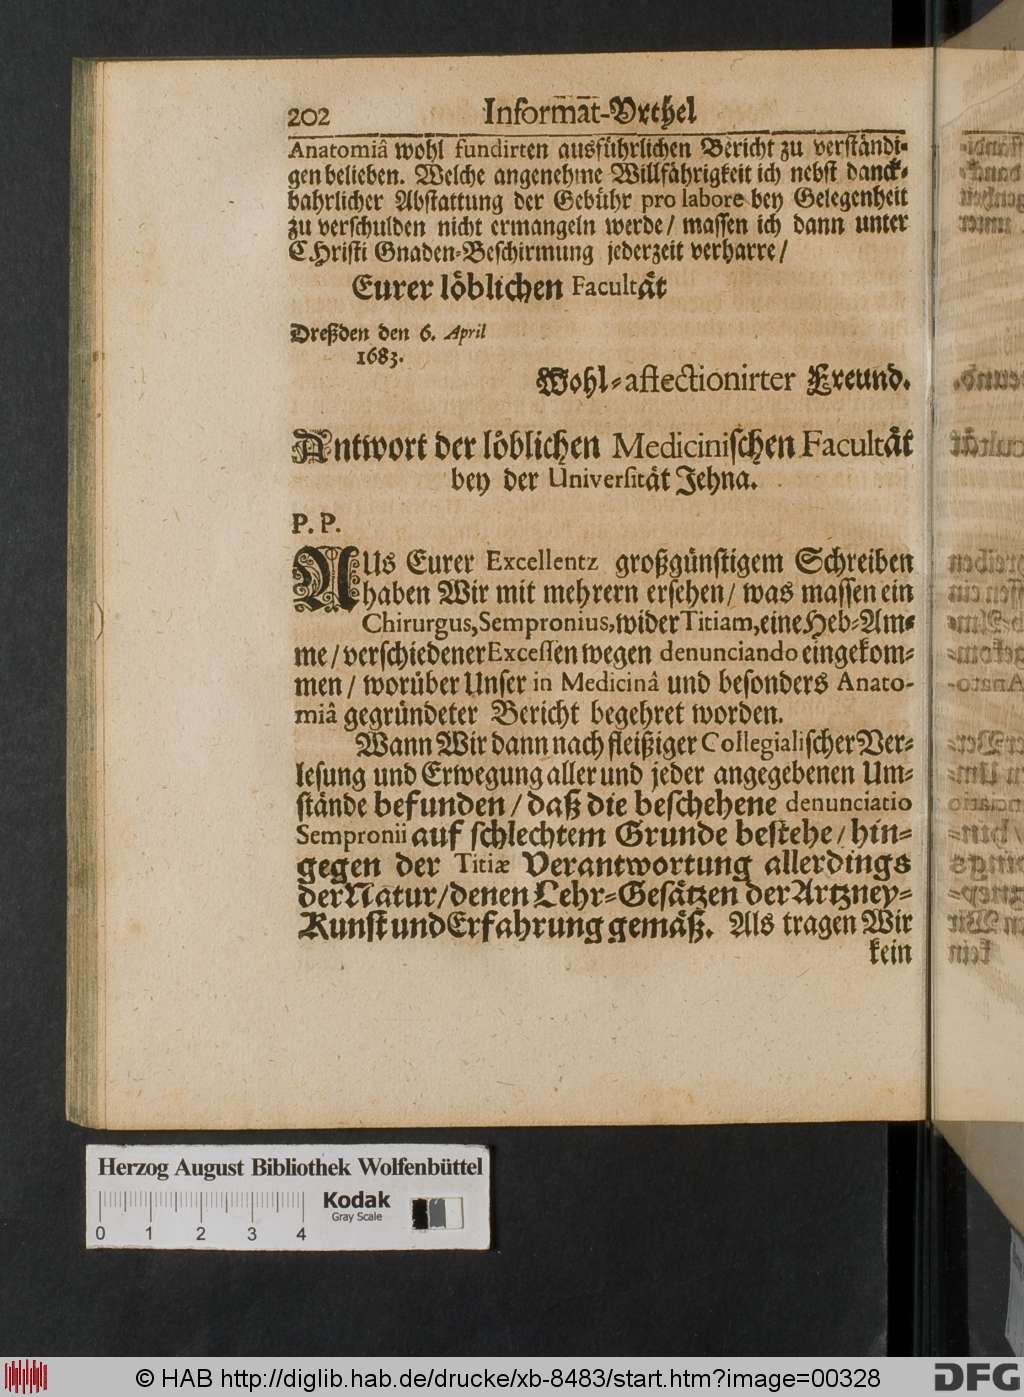 202 Informat̄-Vrthel
Anatomiâ wohl fundirten ausführlichen Bericht zu verständi-
gen belieben. Welche angenehme Willfährigkeit ich nebst danck-
bahrlicher Abstattung der Gebühr pro labore bey Gelegenheit
zu verschulden nicht ermangeln werde/ massen ich dann unter
CHristi Gnaden-Beschirmung jederzeit verharre/
Eurer löblichen Facultät
Dreßden den 6. April
1683.
Wohl-affectionirter Freund.
Antwort der löblichen Medicinischen Facultät
bey der Universität Jehna.
P. P.
AUs Eurer Excellentz großgünstigem Schreiben
haben Wir mit mehrern ersehen/ was massen ein
Chirurgus, Sempronius, wider Titiam, eine Heb-Am-
me/ verschiedener Excessen wegen denunciando eingekom-
men/ worüber Unser in Medicinâ und besonders Anato-
miâ gegründeter Bericht begehret worden.
Wann Wir dann nach fleißiger Collegialischer Ver-
lesung und Erwegung aller und jeder angegebenen Um-
stände befunden/ daß die beschehene denunciatio
Sempronii auf schlechtem Grunde bestehe/ hin-
gegen der Titiæ Verantwortung allerdings
der Natur/ denen Lehr-Gesätzen der Artzney-
Kunst und Erfahrung gemäß. Als tragen Wir
kein
Herzog August Bibliothek Wolfenbüttel
Kodak
Gray Scale
0 1 2 3 4
© HAB http://diglib.hab.de/drucke/xb-8483/start.htm?image=00328
DFG